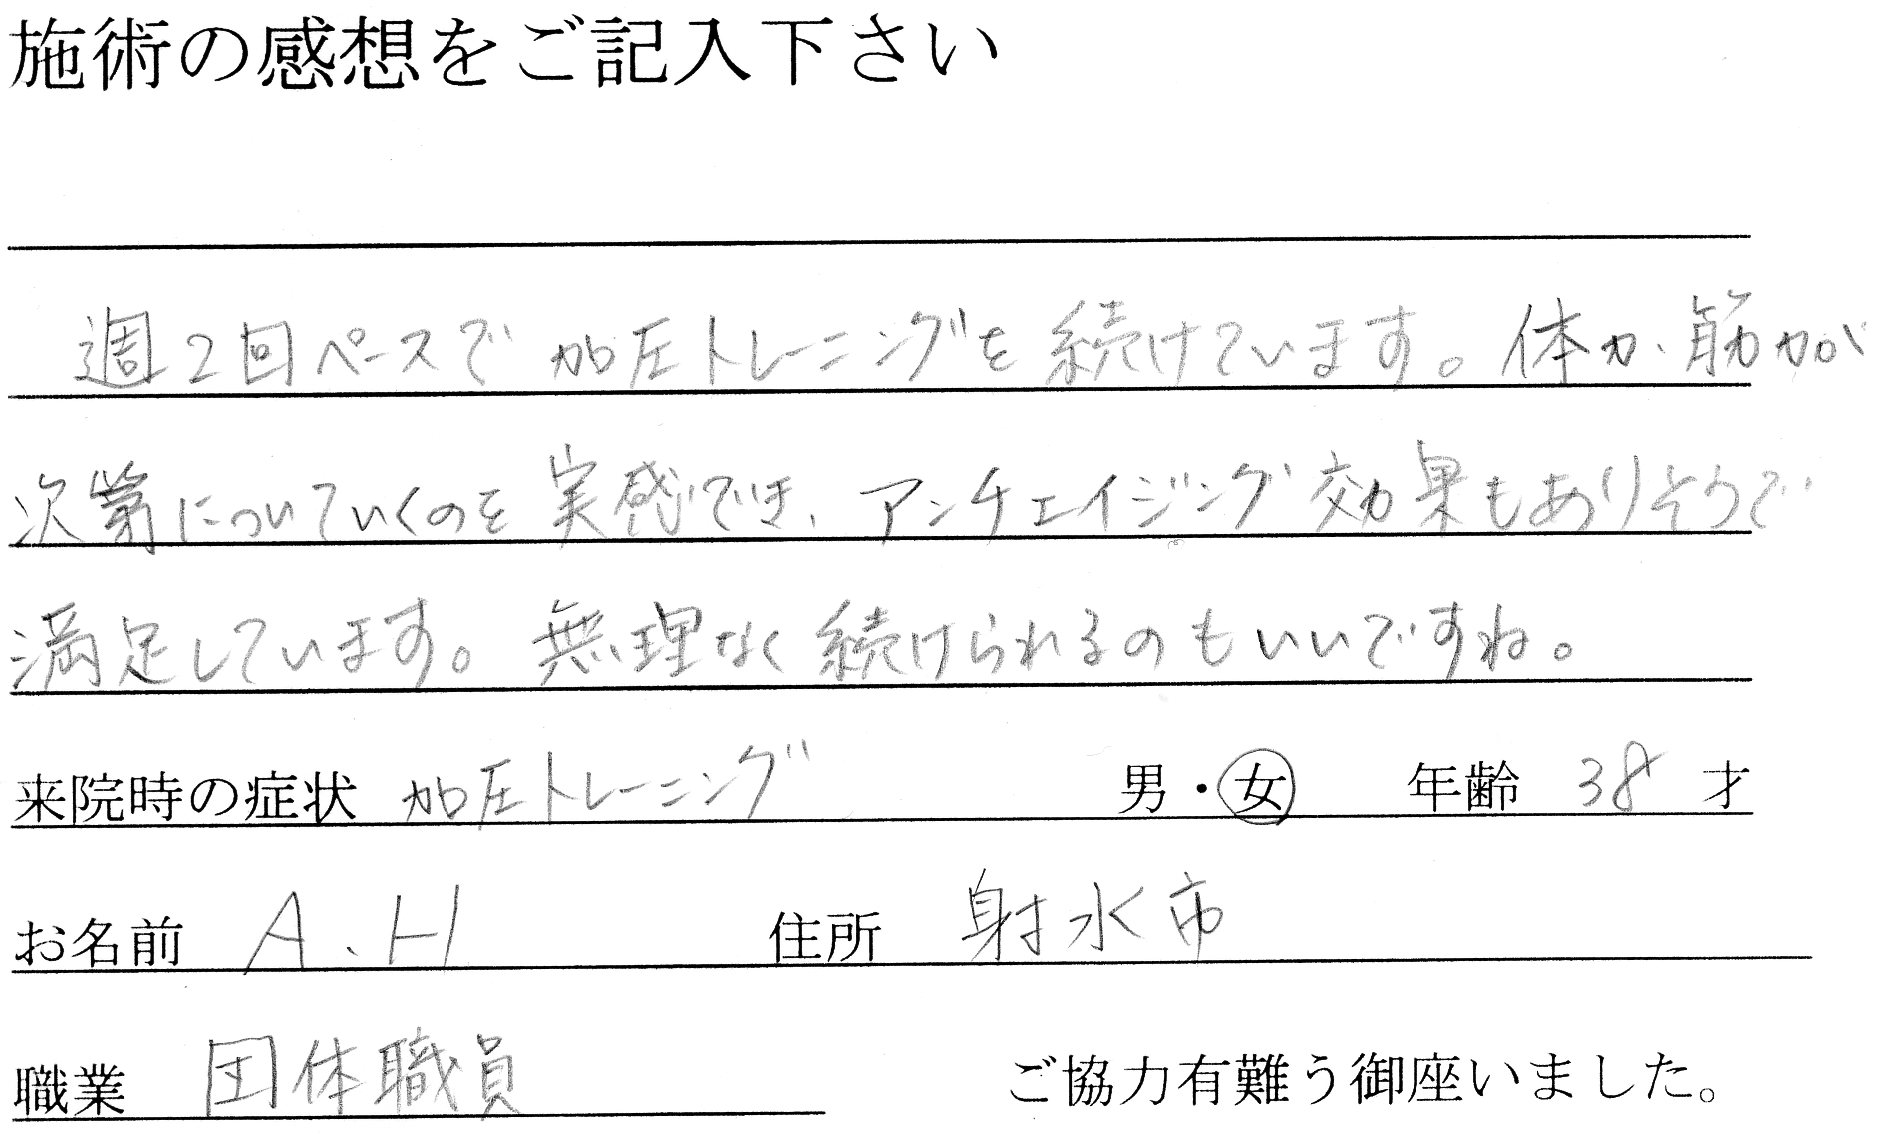 施術の感想をご記入下さい
週2回ペースで加圧トレーニングを続けています。体力、筋力が
次第についていくのを実感でき、アンチエイジング効果もありそうで
満足しています。無理なく続けられるのもいいですね。
来院時の症状 加圧トレーニング 男・女 年齢 38 才
お名前 A.H 住所 射水市
職業 団体職員 ご協力有難う御座いました。